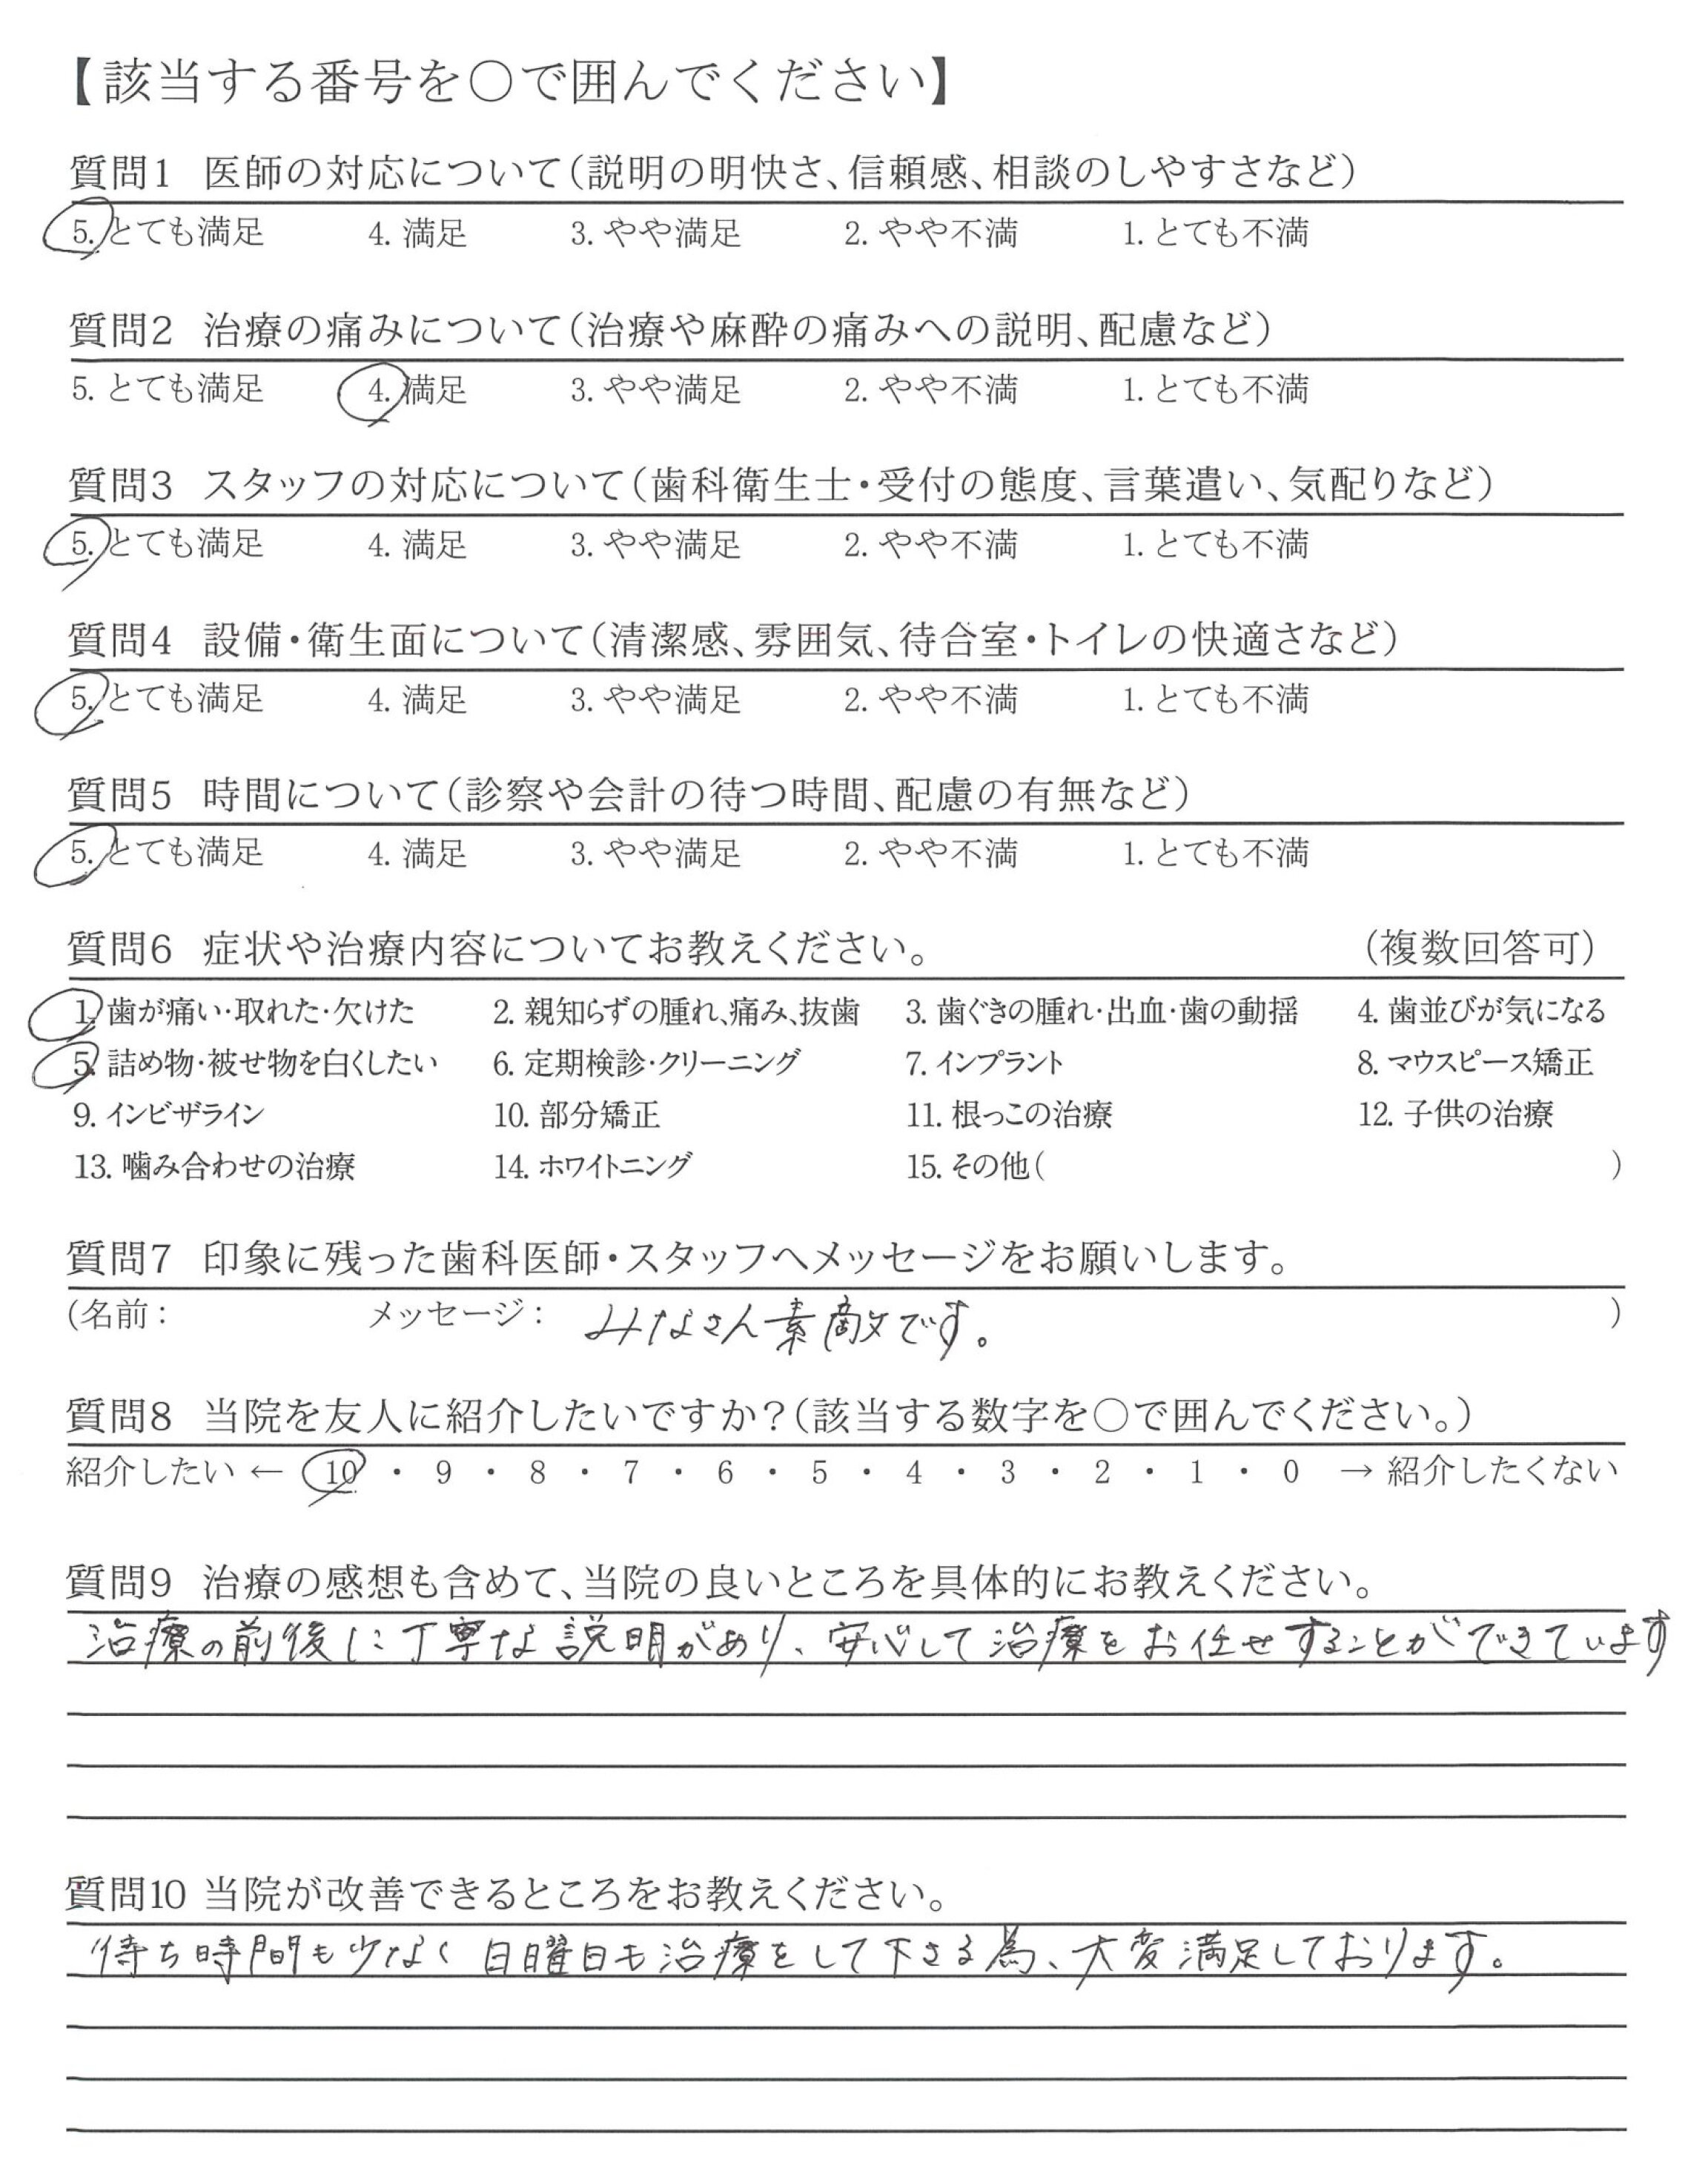 【該当する番号を○で囲んでください】
質問1 医師の対応について(説明の明快さ、信頼感、相談のしやすさなど)
5. とても満足 4. 満足 3. やや満足 2. やや不満 1. とても不満
質問2 治療の痛みについて(治療や麻酔の痛みへの説明、配慮など)
5. とても満足 4. 満足 3. やや満足 2. やや不満 1. とても不満
質問3 スタッフの対応について(歯科衛生士・受付の態度、言葉遣い、気配りなど)
5. とても満足 4. 満足 3. やや満足 2. やや不満 1. とても不満
質問4 設備・衛生面について(清潔感、雰囲気、待合室・トイレの快適さなど)
5. とても満足 4. 満足 3. やや満足 2. やや不満 1. とても不満
質問5 時間について(診察や会計の待つ時間、配慮の有無など)
5. とても満足 4. 満足 3. やや満足 2. やや不満 1. とても不満
質問6 症状や治療内容についてお教えください。 (複数回答可)
1. 歯が痛い・取れた・欠けた 2. 親知らずの腫れ、痛み、抜歯 3. 歯ぐきの腫れ・出血・歯の動揺 4. 歯並びが気になる
5. 詰め物・被せ物を白くしたい 6. 定期検診・クリーニング 7. インプラント 8. マウスピース矯正
9. インビザライン 10. 部分矯正 11. 根っこの治療 12. 子供の治療
13. 噛み合わせの治療 14. ホワイトニング 15. その他( )
質問7 印象に残った歯科医師・スタッフへメッセージをお願いします。
(名前: メッセージ: みなさん素敵です。 )
質問8 当院を友人に紹介したいですか?(該当する数字を○で囲んでください。)
紹介したい ← 10 ・ 9 ・ 8 ・ 7 ・ 6 ・ 5 ・ 4 ・ 3 ・ 2 ・ 1 ・ 0 → 紹介したくない
質問9 治療の感想も含めて、当院の良いところを具体的にお教えください。
治療の前後に丁寧な説明があり、安心して治療をお任せすることができています
質問10 当院が改善できるところをお教えください。
待ち時間も少なく日曜日も治療をして下さる為、大変満足しております。